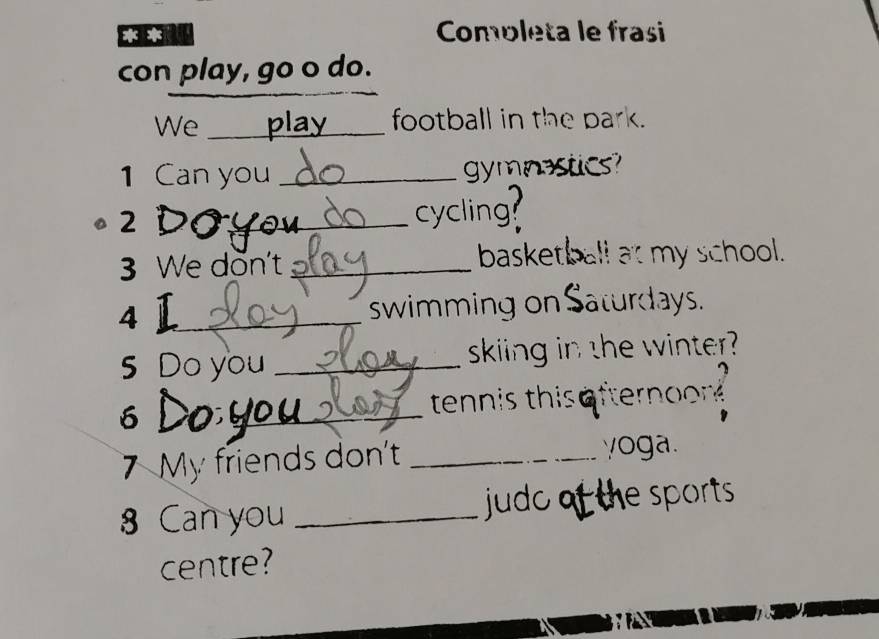 ** Completa le frasi
con play, go o do.
We play football in the park.
1 Can you do gymnastics?
2 Do you do cycling?
3 We don't play basketball at my school.
4 I play swimming on Saturdays.
5 Do you play skiing in the winter?
6 Do you play tennis this afternoon?
7 My friends don't ______ yoga.
8 Can you ______ judo at the sports
centre?